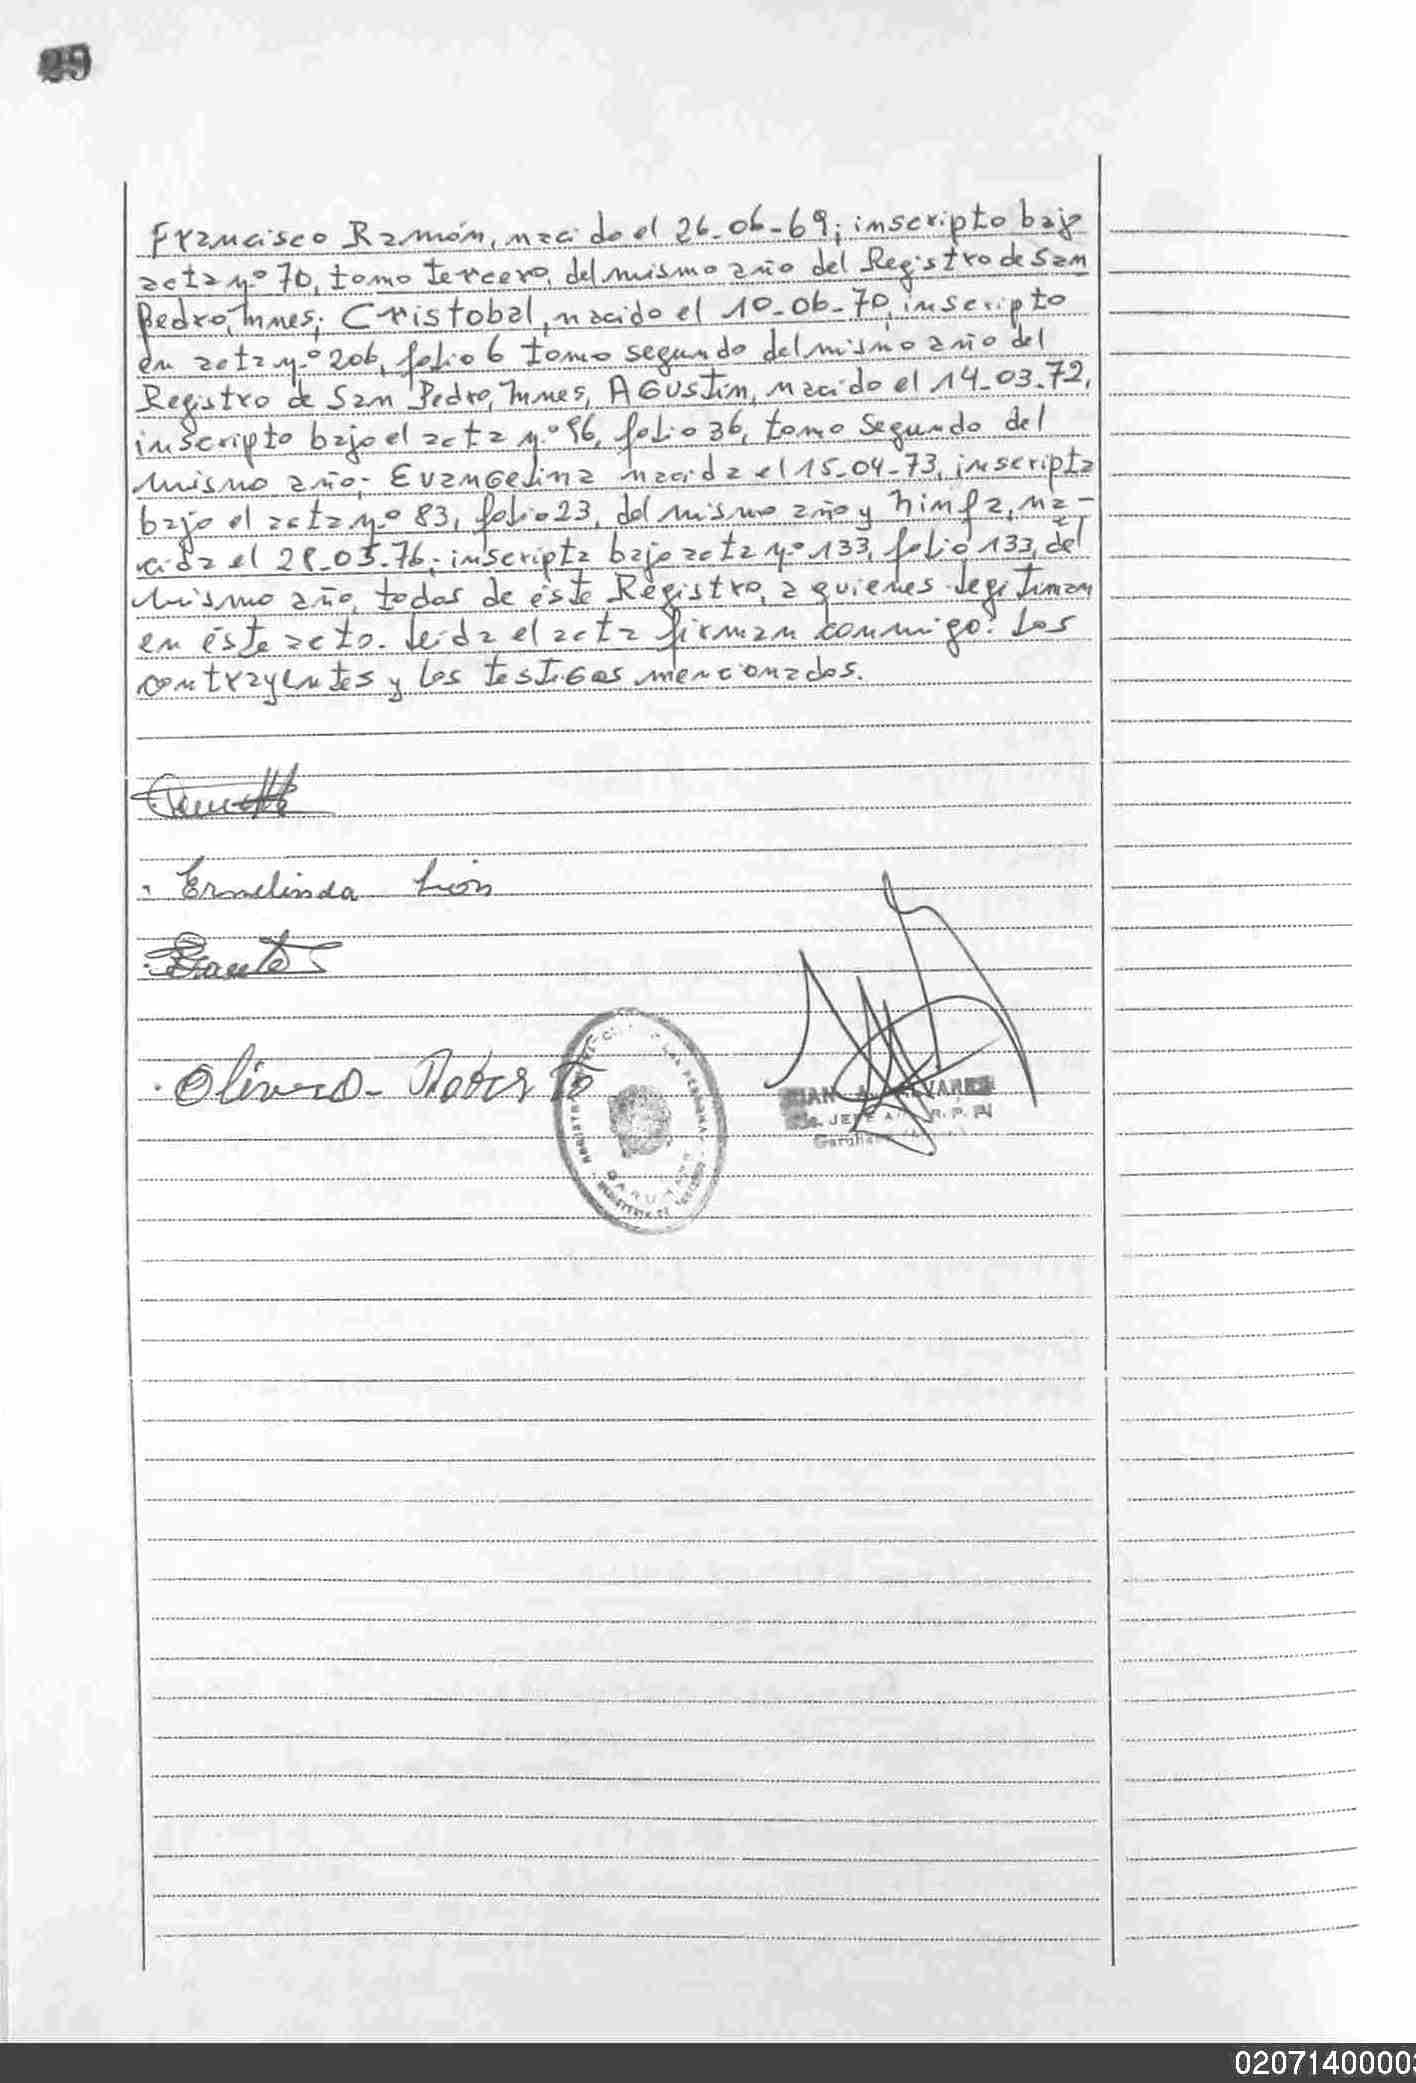 29
Francisco Ramón, nacido el 26-06-69; inscripto bajo
acta nº 70, tomo tercero, del mismo año del Registro de San
Pedro, Mnes; Cristobal, nacido el 10-06-70, inscripto
en acta nº 206, folio 6 tomo segundo del mismo año del
Registro de San Pedro, Mnes, AGUStin, nacido el 14-03-72,
inscripto bajo el acta nº 96, folio 36, tomo segundo del
mismo año; Evangelina nacida el 15-04-73, inscripta
bajo el acta nº 83, folio 23, del mismo año y Ninfa, na-
cida el 28-05-76; inscripta bajo acta nº 133, folio 133, del
mismo año, todos de éste Registro, a quienes legitiman
en éste acto. Leida el acta firman conmigo: los
contrayentes y los testigos mencionados.
Ermelinda
Olivera - Roberto
JUAN A. ALVAREZ
JEFE R. P. P.
GARUHAPE